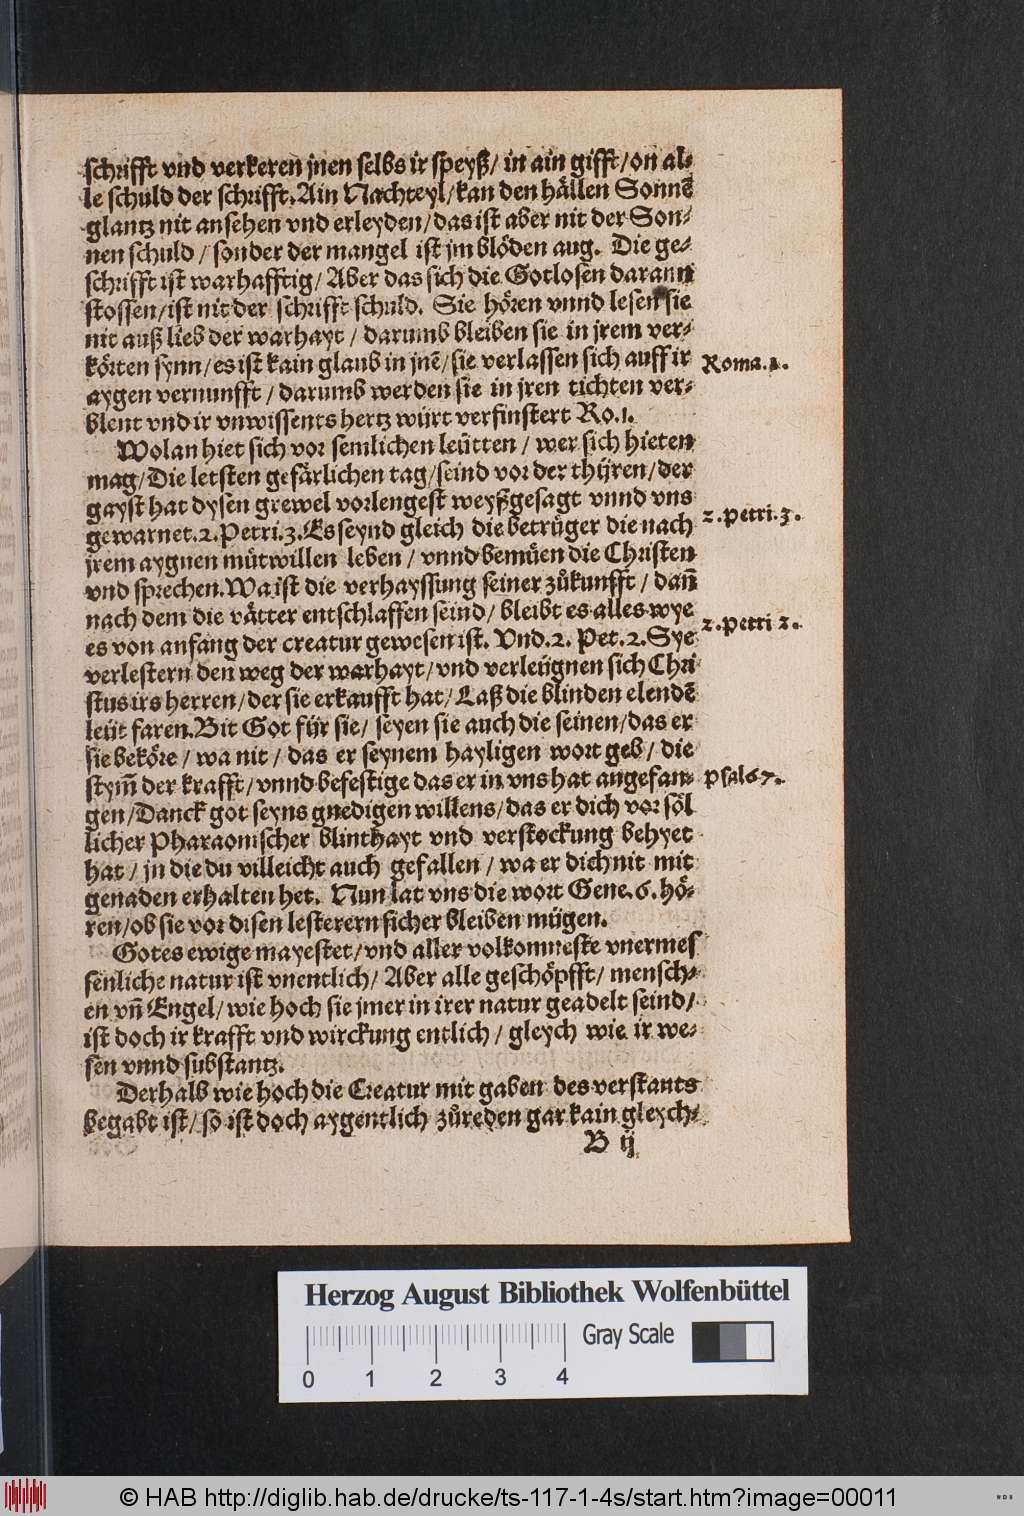 schrifft vnd verkeren jnen selbs ir speyß/ in ain gifft/on al-
le schuld der schrifft. Ain Nachteyl/kan den hällen Sonnē
glantz nit ansehen vnd erleyden/das ist aber nit der Son-
nen schuld /sonder der mangel ist jm blöden aug. Die ge-
schrifft ist warhafftig/ Aber das sich die Gotlosen darann
stossen/ist nit der schrifft schuld. Sie hören vnnd lesen sie
nit auß lieb der warhayt / darumb bleiben sie in jrem ver-
körten synn/es ist kain glaub in jnē/sie verlassen sich auff ir
Roma.1.
aygen vernunfft / darumb werden sie in jren tichten ver-
blent vnd ir vnwissents hertz würt verfinstert Ro.1.
Wolan hiet sich vor semlichen leütten / wer sich hieten
mag/Die letsten gefärlichen tag/seind vor der thijren/der
gayst hat dysen grewel vorlengest weyßgesagt vnnd vns
gewarnet.2.Petri.3.Es seynd gleich die betrüger die nach
2.petri.3.
jrem aygnen mütwillen leben / vnnd bemüen die Christen
vnd sprechen.Wa ist die verhayssung seiner zůkunfft / dañ
nach dem die vätter entschlaffen seind/ bleibt es alles wye
2.petri 2.
es von anfang der creatur gewesen ist. Vnd.2. Pet.2.Sye
verlestern den weg der warhayt/vnd verleügnen sich Chri-
stus irs herren/der sie erkaufft hat/Laß die blinden elendē
leüt faren.Bit Got für sie/ seyen sie auch die seinen/das er
sie beköre / wa nit / das er seynem hayligen wort geb/ die
stym̄ der krafft/vnnd befestige das er in vns hat angefan-
psal 67.
gen/Danck got seyns gnedigen willens/das er dich vor söl
licher Pharaonischer blinthayt vnd verstockung behyet
hat / jn die du villeicht auch gefallen / wa er dich nit mit
genaden erhalten het. Nun lat vns die wort Gene.6. hö-
ren/ob sie vor disen lesterern sicher bleiben mügen.
Gotes ewige mayestet/vnd aller volkomneste vnermes
senliche natur ist vnentlich/ Aber alle geschöpfft/ mensch-
en vñ Engel/wie hoch sie jmer in irer natur geadelt seind/
ist doch ir krafft vnd wirckung entlich / gleych wie ir we-
sen vnnd substantz.
Derhalb wie hoch die Creatur mit gaben des verstants
begabt ist/ so ist doch aygentlich zůreden gar kain gleych-
B ij
Herzog August Bibliothek Wolfenbüttel
Gray Scale
0 1 2 3 4
© HAB http://diglib.hab.de/drucke/ts-117-1-4s/start.htm?image=00011